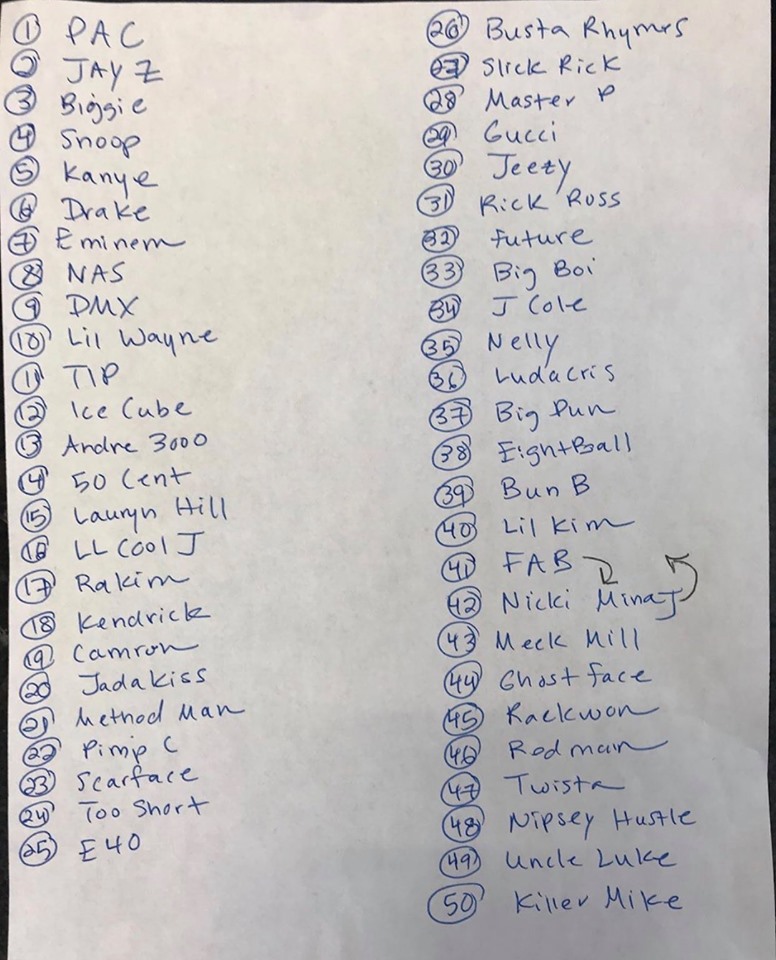 1 PAC
2 JAY Z
3 Biggie
4 Snoop
5 Kanye
6 Drake
7 Eminem
8 NAS
9 DMX
10 Lil Wayne
11 TIP
12 Ice Cube
13 Andre 3000
14 50 Cent
15 Lauryn Hill
16 LL COOL J
17 Rakim
18 Kendrick
19 Camron
20 Jadakiss
21 Method Man
22 Pimp C
23 Scarface
24 Too Short
25 E40
26 Busta Rhymes
27 Slick Rick
28 Master P
29 Gucci
30 Jeezy
31 Rick Ross
32 Future
33 Big Boi
34 J Cole
35 Nelly
36 Ludacris
37 Big Pun
38 EightBall
39 Bun B
40 Lil Kim
41 FAB
42 Nicki Minaj
43 Meek Mill
44 Ghostface
45 Raekwon
46 Redman
47 Twista
48 Nipsey Hustle
49 Uncle Luke
50 Killer Mike